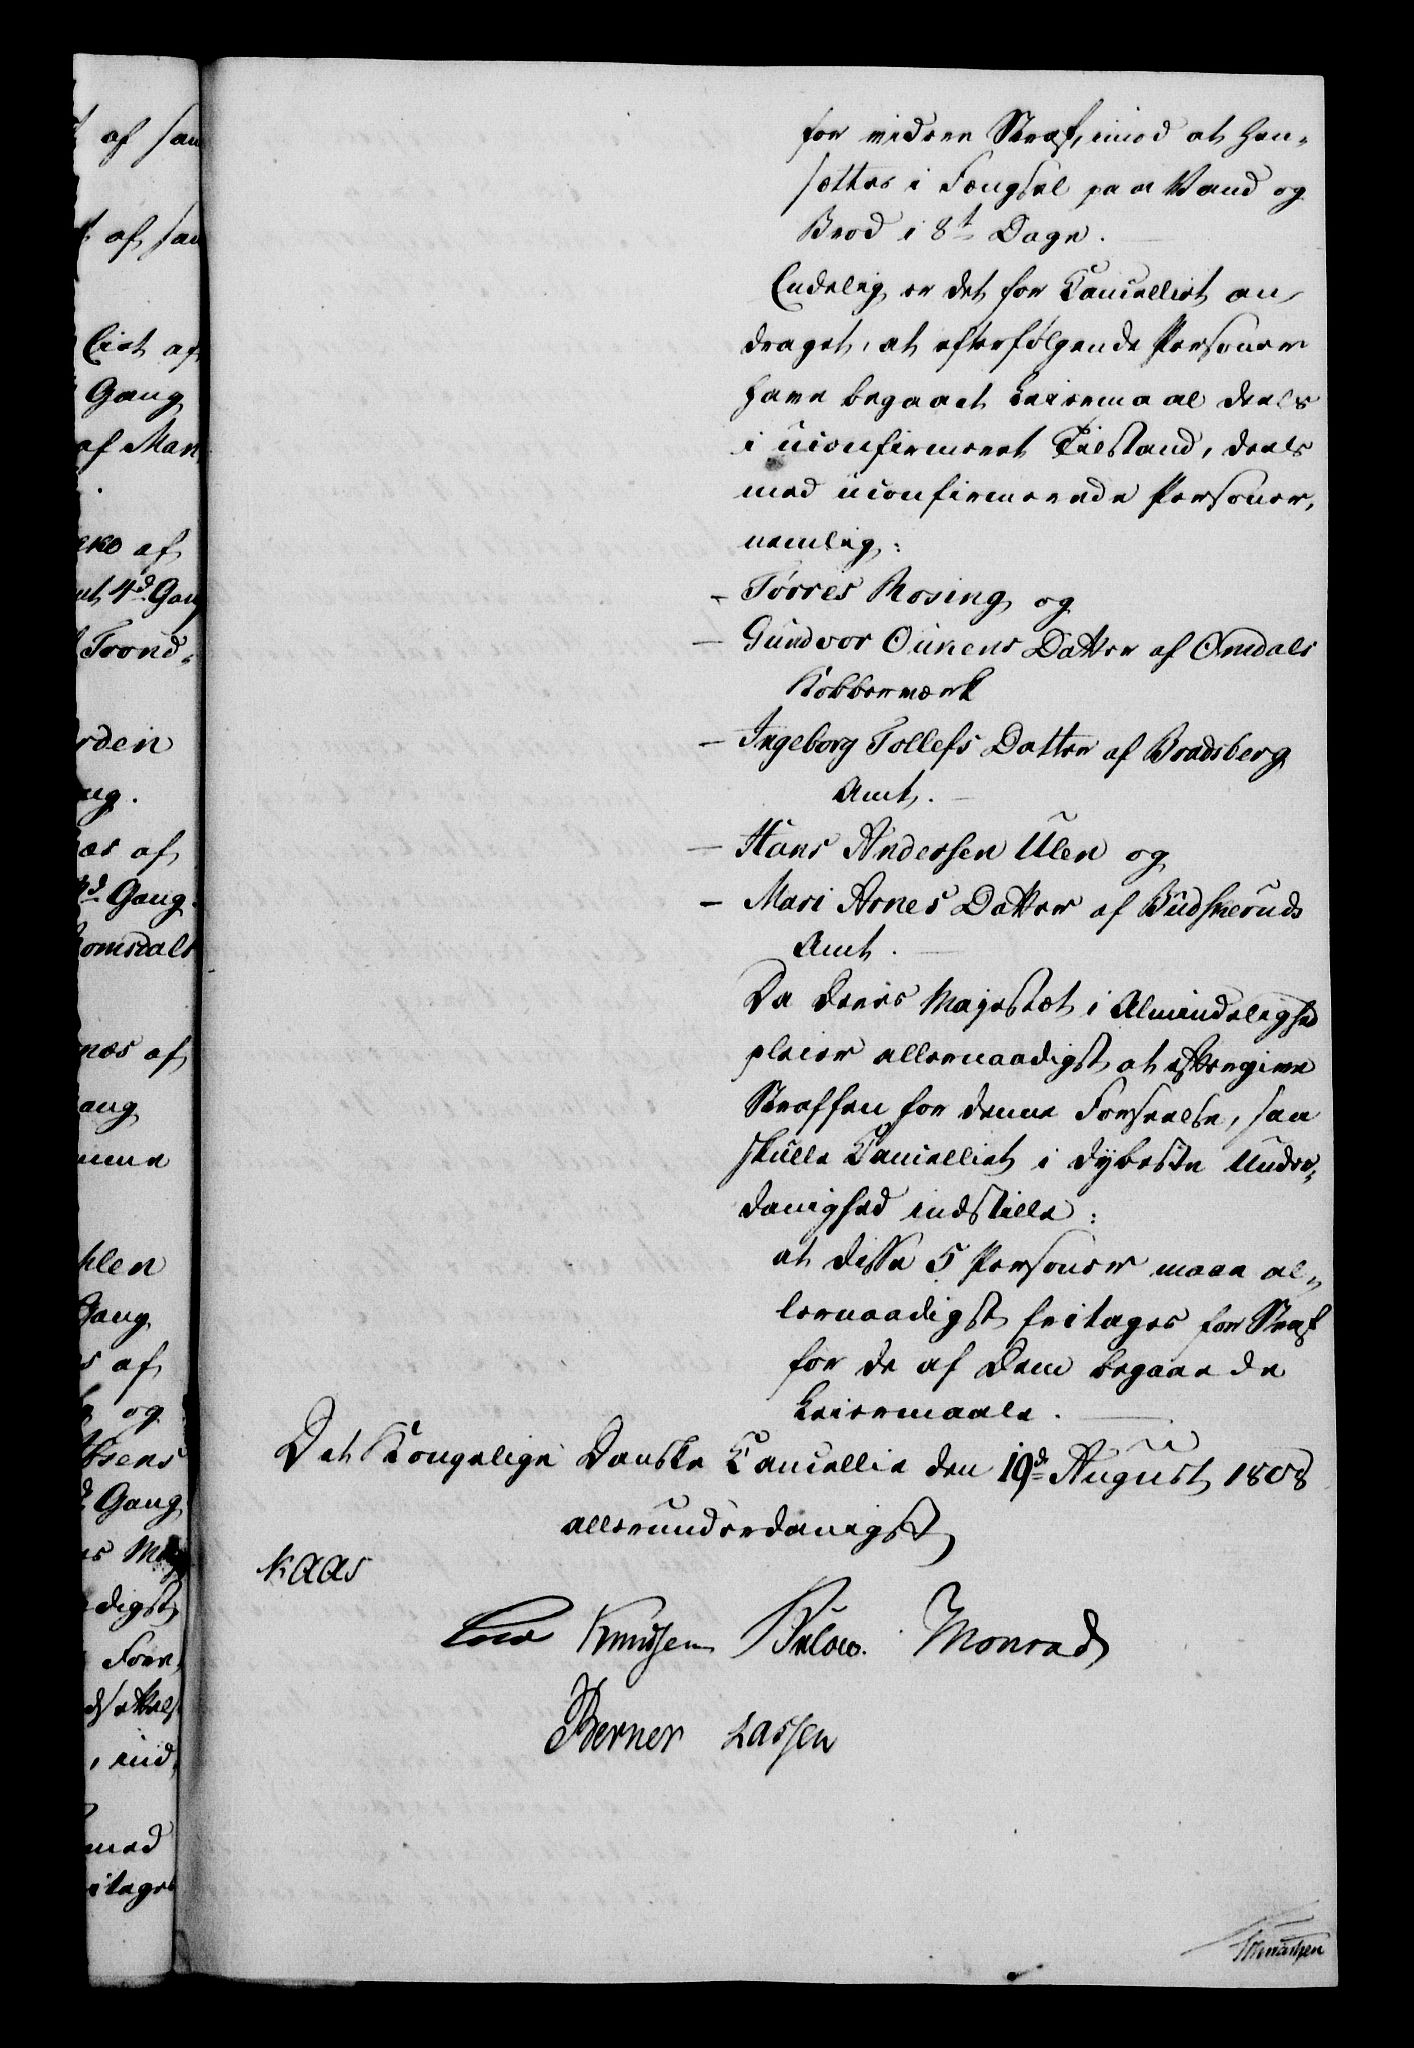 af sam
af sam
Ciet af
Gang
af Man
af
4d Gang
Trond-
rden
af
Gang
Romsdals
næs af
Gang
hlen
Gang
af
og
Gang
digst
med
itages
for videre Straf, imod at hen-
sættes i Fængsel paa Vand og
Brød i 8te Dage.
Endelig er det for Cancelliet an-
draget, at efterfølgende Personer
have begaaet Leiermaal deels
i uconfirmeret Tilstand, deels
med uconfirmerede Personer,
nemlig:
- Tørres Rosing og
- Gundvor Ounens Datter af Omdals
Kobberværk
- Ingeborg Tollefs Datter af Bradsberg
Amt.
- Hans Andersen Ulen og
- Mari Arnes Datter af Budskeruds
Amt.
Da Deres Majestæt i Almindelighed
pleier allernaadigst at eftergive
Straffen for denne Forseelse, saa
skulle Cancelliet i dybeste Under-
danighed indstille:
at disse 5 Personer maae al-
lernaadigst fritages for Straf
for de af dem begaaede
Leiermaale.
Det Kongelige Danske Cancellie den 19d August 1808
allerunderdanigst
Kaas
Knudsen Bülow. Monrad
Berner Lassen